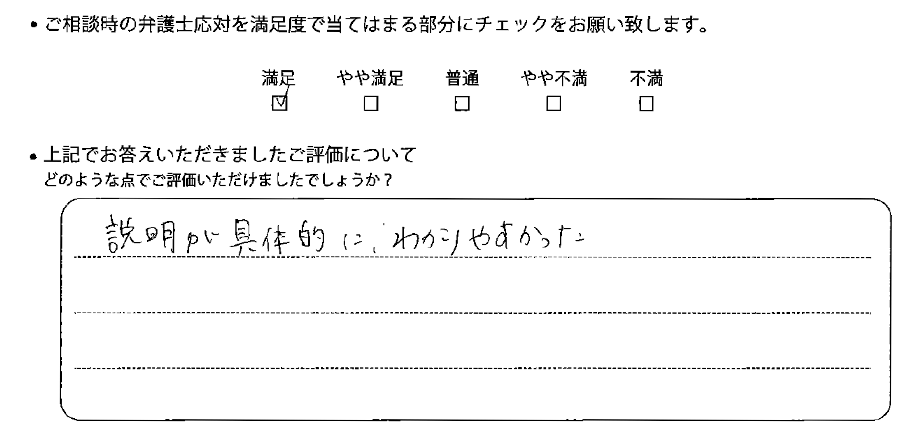 • ご相談時の弁護士応対を満足度で当てはまる部分にチェックをお願い致します。
満足 やや満足 普通 やや不満 不満
☑ ☐ ☐ ☐ ☐
• 上記でお答えいただきましたご評価について
どのような点でご評価いただけましたでしょうか？
説明が具体的に、わかりやすかった